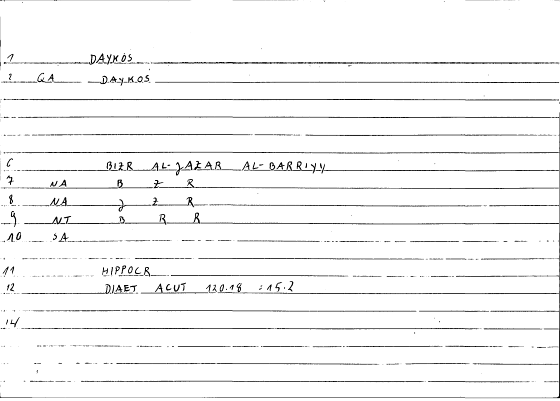 1 DAYKOS
2 GA DAYKOS
6 BIZR AL-JAZAR AL-BARRIYY
7 NA B Z R
8 NA J Z R
9 NT B R R
10 SA
11 HIPPOCR
12 DIAET ACUT 120.18 :15.2
14